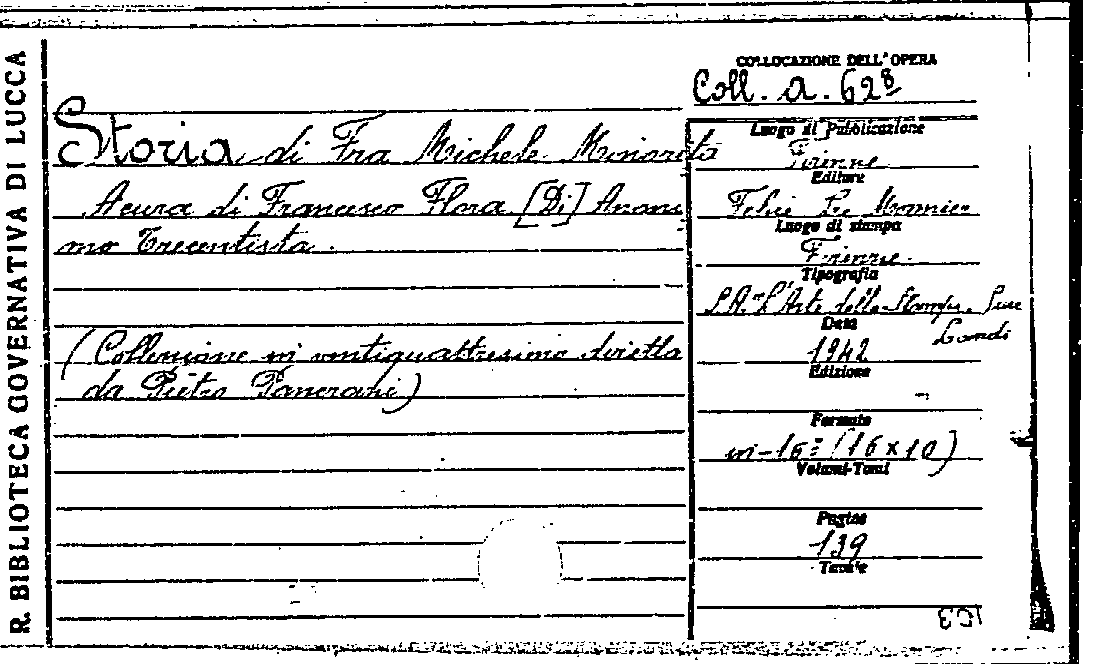 R. BIBLIOTECA GOVERNATIVA DI LUCCA
COLLOCAZIONE DELL'OPERA
Coll. a. 628
Storia di Fra Michele Minorita
Acura di Francesco Flora [Di] Anoni
mo Trecentista.
(Collezione in ventiquattresimo diretta
da Pietro Pancrazi)
Luogo di Pubblicazione
Firenze
Editore
Felice Le Monnier
Luogo di stampa
Firenze
Tipografia
S.A. L'Arte della Stampa. Succ
Landi
Data
1942
Edizione
Formato
in-16º (16x10)
Volumi-Tomi
Pagine
139
Tavole